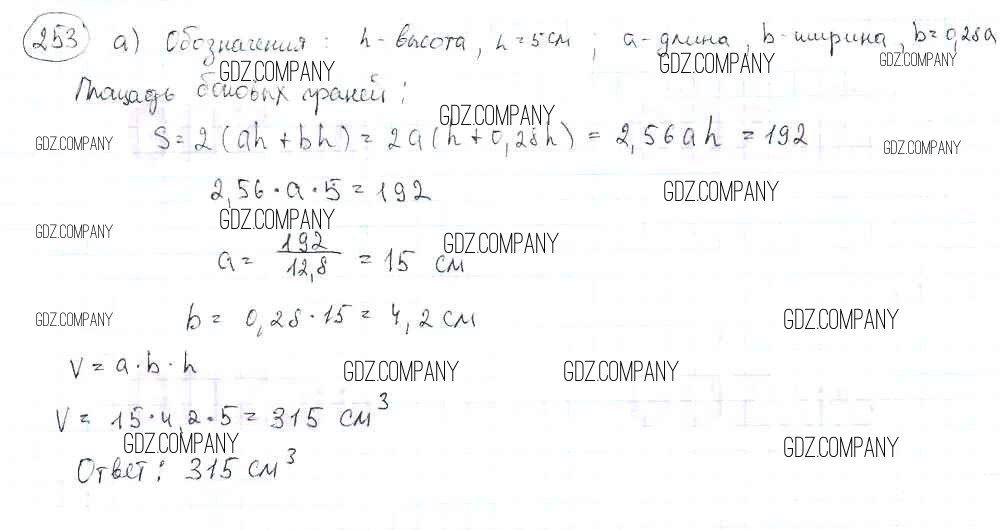 253 а) Обозначения: h-высота, h=5см; a-длина, b-ширина, b=0,28a
GDZ.COMPANY GDZ.COMPANY GDZ.COMPANY
Площадь боковых граней:
GDZ.COMPANY
GDZ.COMPANY S=2(ah+bh)=2a(h+0,28h)=2,56ah=192 GDZ.COMPANY
2,56·a·5=192 GDZ.COMPANY
GDZ.COMPANY GDZ.COMPANY
a=192/12,8=15 см GDZ.COMPANY
GDZ.COMPANY b=0,28·15=4,2см GDZ.COMPANY
V=a·b·h GDZ.COMPANY GDZ.COMPANY
V=15·4,2·5=315 см³
GDZ.COMPANY GDZ.COMPANY
Ответ: 315 см³